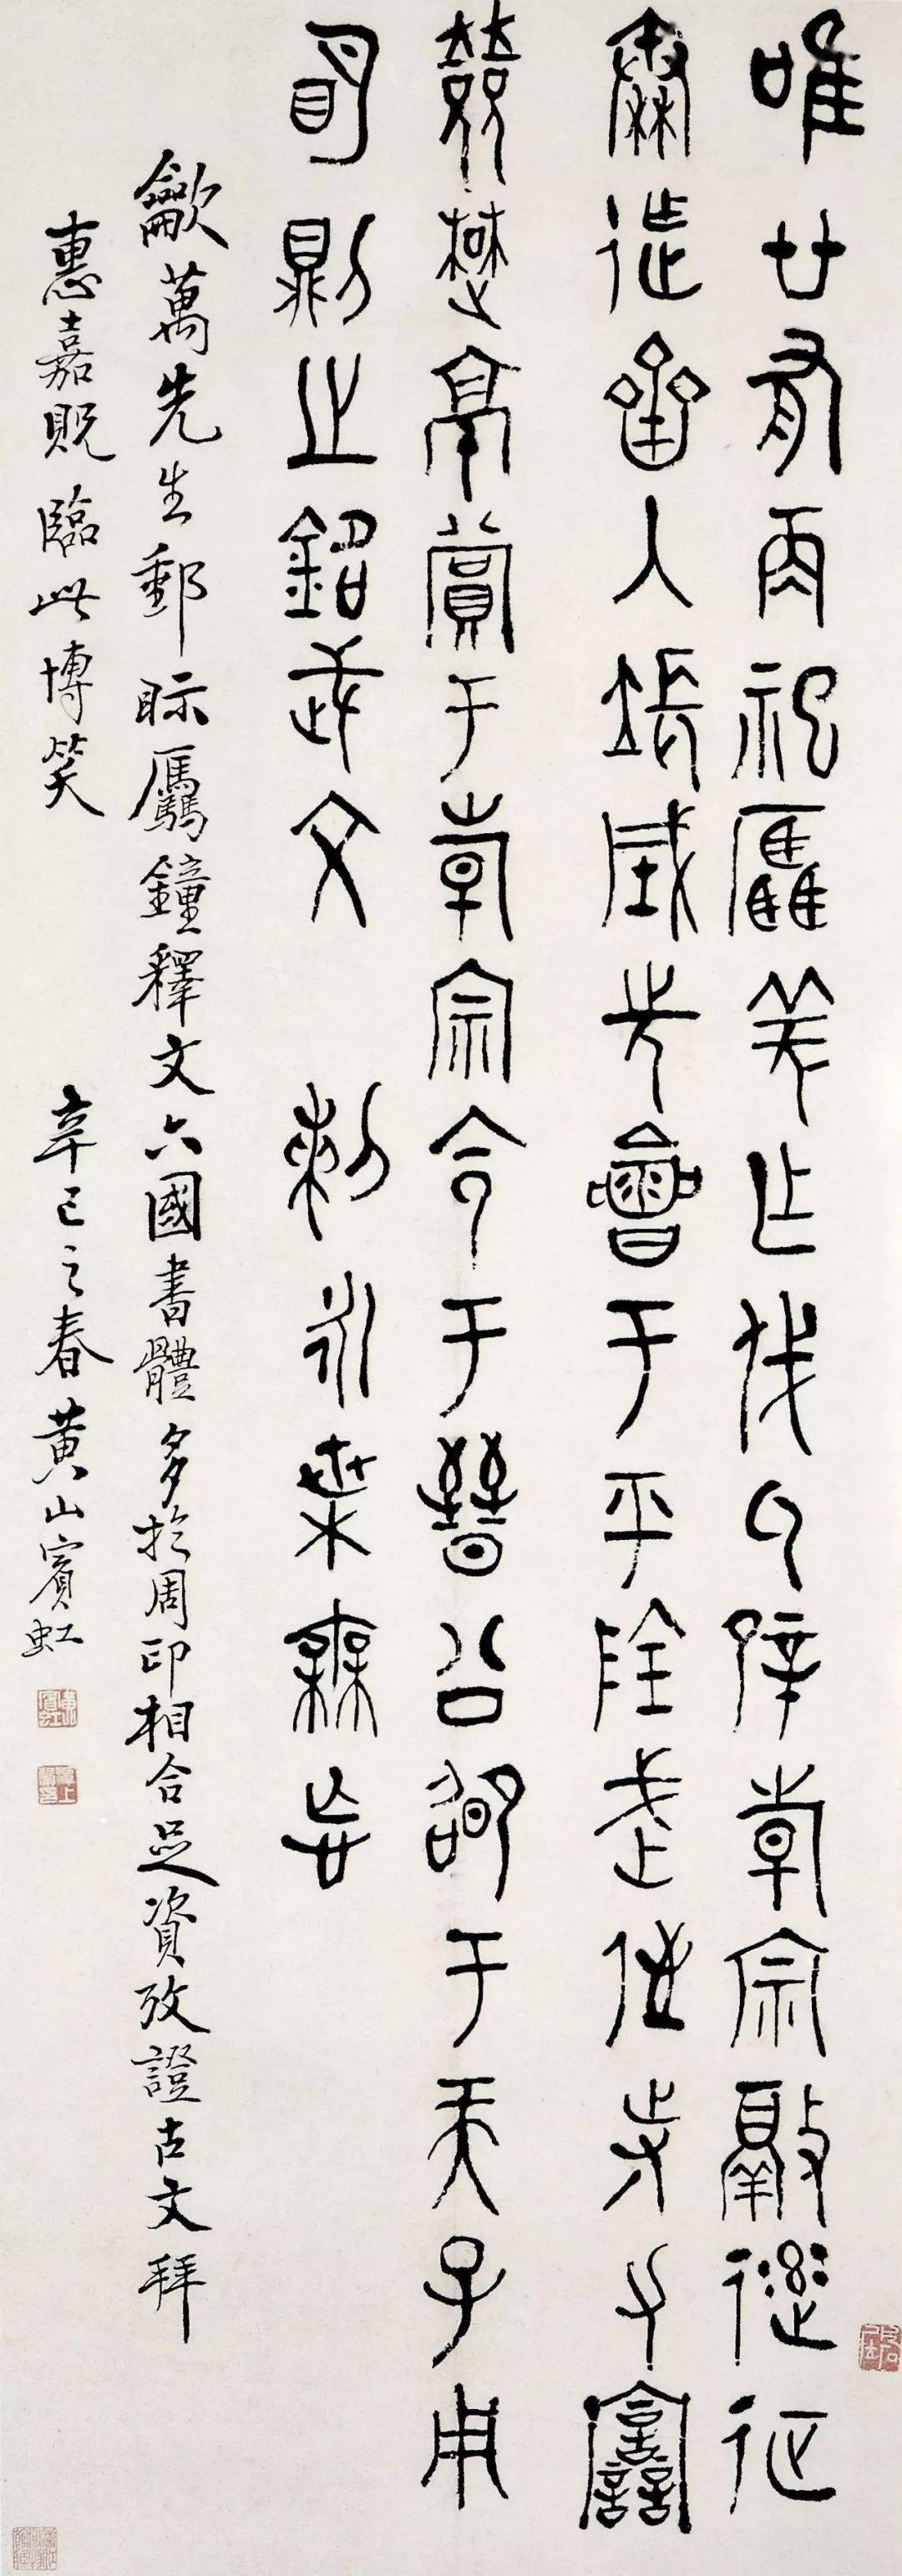 唯廿又再祀驫羌乍戎氒辟倝宗敲遳征
秦迮齊入張城先會于平陰武侄寺力譶
敚楚京賞于倝宗令于晉公卲于天子用
明則之銘武文 剌永枼無忘
龡萬先生郵眎驫鐘釋文六國書體多於周印相合足資攷證古文拜
惠嘉貺臨此博笑 辛巳之春黃山賓虹